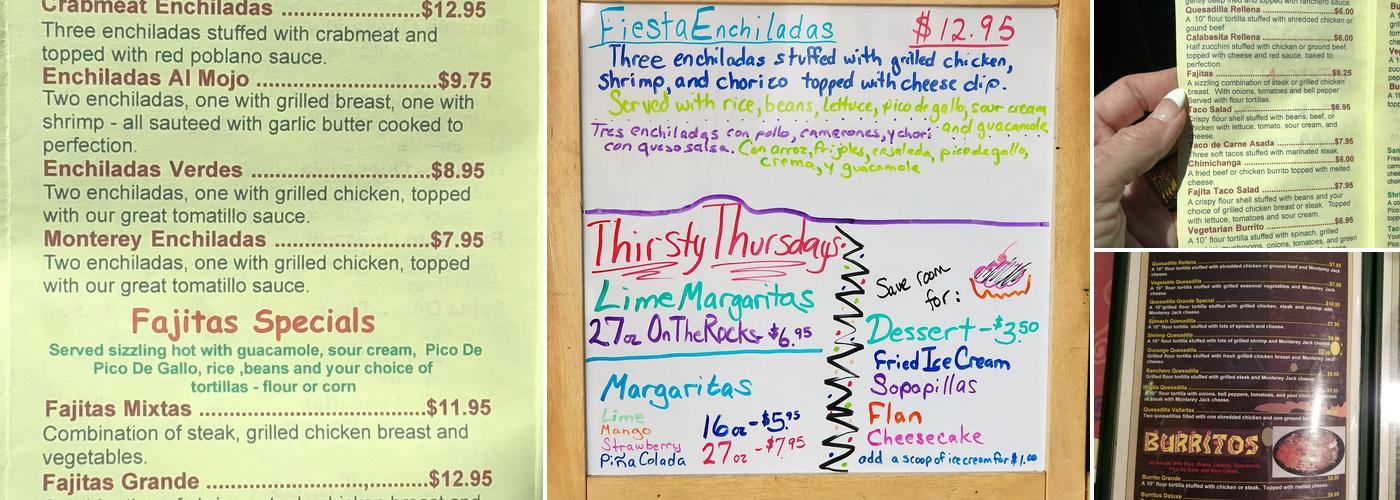 Crabmeat Enchiladas ........................$12.95
Three enchiladas stuffed with crabmeat and
topped with red poblano sauce.
Enchiladas Al Mojo ............................$9.75
Two enchiladas, one with grilled breast, one with
shrimp - all sauteed with garlic butter cooked to
perfection.
Enchiladas Verdes .............................$8.95
Two enchiladas, one with grilled chicken, topped
with our great tomatillo sauce.
Monterey Enchiladas ........................$7.95
Two enchiladas, one with grilled chicken, topped
with our great tomatillo sauce.
Fajitas Specials
Served sizzling hot with guacamole, sour cream, Pico De
Pico De Gallo, rice ,beans and your choice of
tortillas - flour or corn
Fajitas Mixtas ...................................$11.95
Combination of steak, grilled chicken breast and
vegetables.
Fajitas Grande ..................................$12.95
Fiesta Enchiladas $12.95
Three enchiladas stuffed with grilled chicken,
shrimp, and chorizo topped with cheese dip.
Served with rice, beans, lettuce, pico de gallo, sour cream
and guacamole
Tres enchiladas con pollo, camarones, y chori
con queso salsa. Con arroz, frijoles, ensalada, pico de gallo,
crema, y guacamole
Thirsty Thursdays
Lime Margaritas
27oz On The Rocks - $6.95
Margaritas
Lime
Mango
Strawberry
Piña Colada
16oz - $5.95
27oz - $7.95
Save room
for:
Dessert - $3.50
Fried Ice Cream
Sopapillas
Flan
Cheesecake
add a scoop of ice cream for $1.00
Quesadilla Rellena ....................$6.00
A 10" flour tortilla stuffed with shredded chicken or
gound beef.
Calabasita Rellena ....................$6.00
Half zucchini stuffed with chicken or ground beef,
topped with cheese and red sauce, baked to
perfection.
Fajitas ....................$8.25
A sizzling combination of steak or grilled chicken
breast. With onions, tomatoes and bell pepper
Served with flour tortillas.
Taco Salad ....................$6.95
Crispy flour shell stuffed with beans, beef, or
chicken with lettuce, tomato, sour cream, and
cheese.
Taco de Carne Asada ....................$7.95
Three soft tacos stuffed with marinated steak.
Chimichanga ....................$6.00
A fried beef or chicken burrito topped with melted
cheese.
Fajita Taco Salad ....................$7.95
A crispy flour shell stuffed with beans and your
choice of grilled chicken breast or steak. Topped
with lettuce, tomatoes and sour cream.
Vegetarian Burrito ....................$6.95
A 10" flour tortilla stuffed with spinach, grilled
mushrooms, onions, tomatoes, and green
Quesadilla Rellena
A 10" flour tortilla stuffed with shredded chicken or ground beef and Monterey Jack
cheese.
Vegetable Quesadilla
A 10" flour tortilla stuffed with grilled seasonal vegetables and Monterey Jack
cheese.
Quesadilla Grande Special
Spinach Quesadilla
A 10" flour tortilla stuffed with lots of spinach and cheese.
Shrimp Quesadilla
A 10" flour tortilla stuffed with lots of grilled shrimp and Monterey Jack cheese
Durango Quesadilla
Grilled flour tortilla stuffed with fresh grilled chicken breast and Monterey Jack
cheese.
Ranchero Quesadilla
Grilled flour tortilla stuffed with grilled steak and Monterey Jack cheese.
Quesadilla Vallartas
BURRITOS
Burrito Grande
Burritos Deluxe